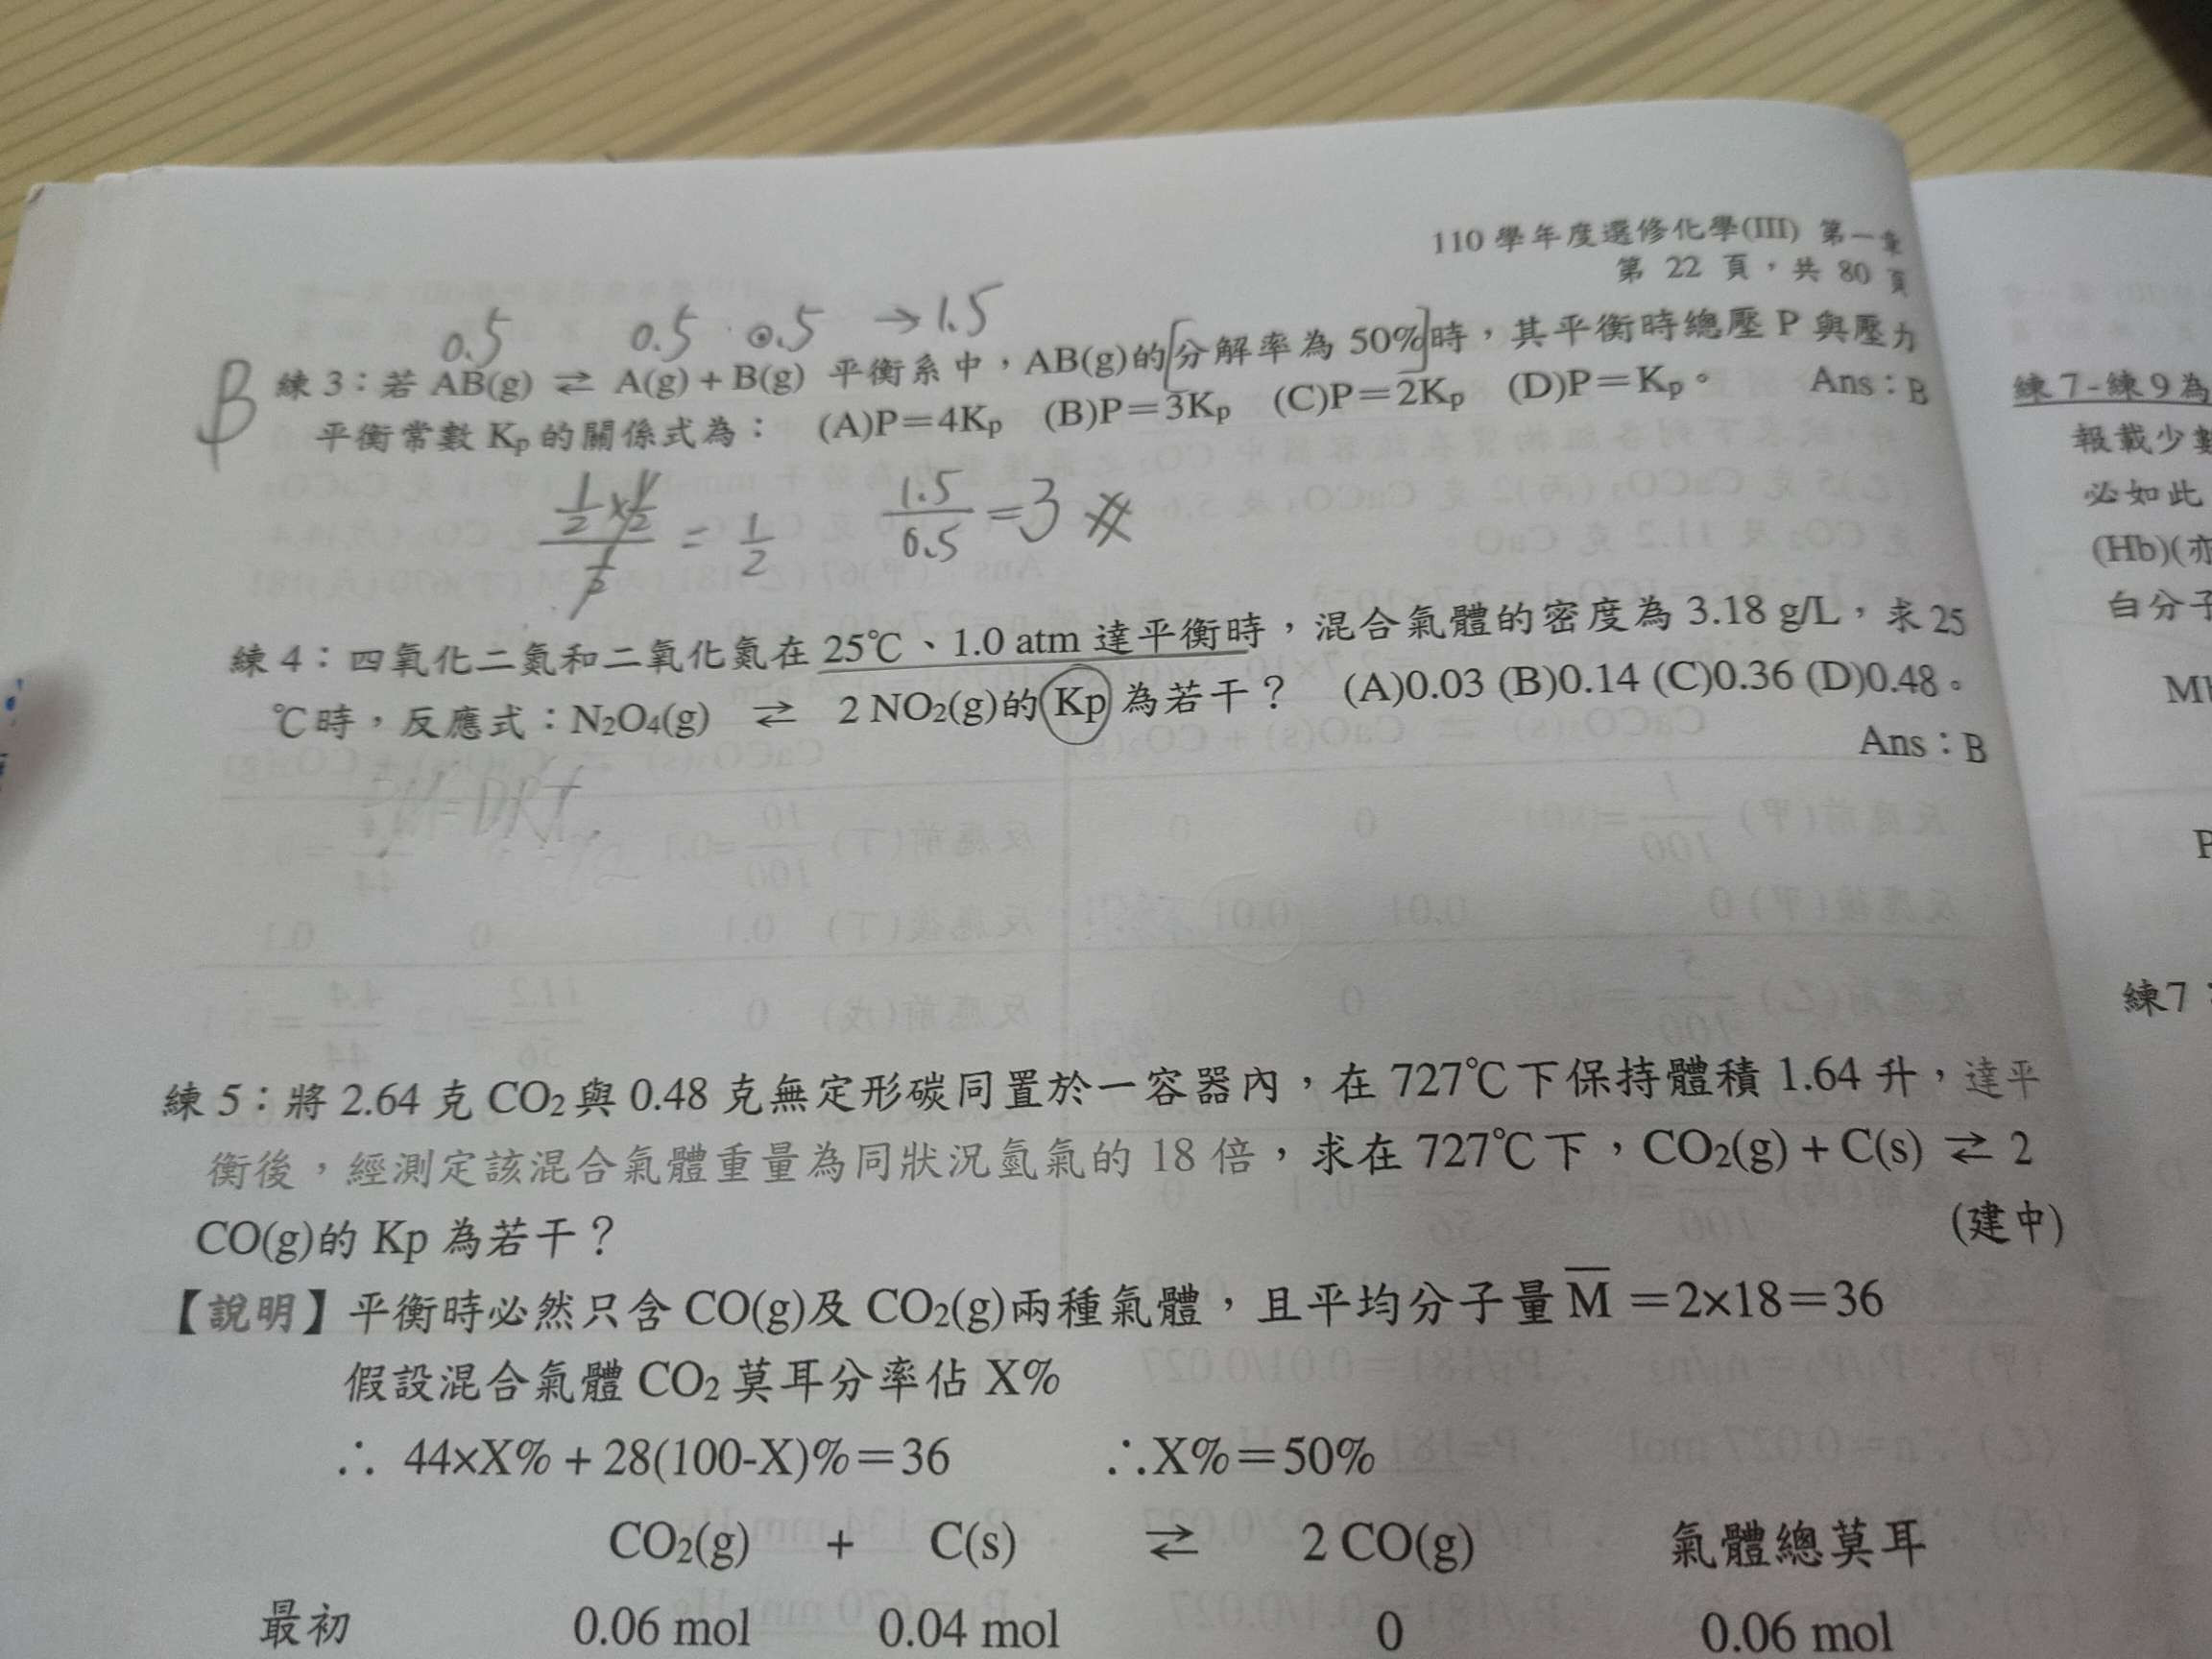 110 學年度選修化學(III) 第一章
第 22 頁，共 80 頁
0.5 0.5 0.5 →1.5
B
練 3：若 AB(g) ⇄ A(g) + B(g) 平衡系中，AB(g)的[分解率為 50%]時，其平衡時總壓 P 與壓力
平衡常數 Kp 的關係式為： (A)P＝4Kp (B)P＝3Kp (C)P＝2Kp (D)P＝Kp。 Ans：B
1/2 × 1/2 / 1/2 = 1/2 1.5/0.5 = 3
練 4：四氧化二氮和二氧化氮在 25℃、1.0 atm 達平衡時，混合氣體的密度為 3.18 g/L，求 25
℃時，反應式：N2O4(g) ⇄ 2 NO2(g)的 Kp 為若干？ (A)0.03 (B)0.14 (C)0.36 (D)0.48。
Ans：B
=DRT
練 5：將 2.64 克 CO2 與 0.48 克無定形碳同置於一容器內，在 727℃下保持體積 1.64 升，達平
衡後，經測定該混合氣體重量為同狀況氫氣的 18 倍，求在 727℃下，CO2(g) + C(s) ⇄ 2
CO(g)的 Kp 為若干？ (建中)
【說明】平衡時必然只含 CO(g)及 CO2(g)兩種氣體，且平均分子量 M̅ ＝2×18＝36
假設混合氣體 CO2 莫耳分率佔 X%
∴ 44×X% + 28(100-X)%＝36 ∴X%＝50%
CO2(g) + C(s) ⇄ 2 CO(g) 氣體總莫耳
最初 0.06 mol 0.04 mol 0 0.06 mol
練 7-練 9 為
報載少數
必如此
(Hb)(亦
白分子
練7